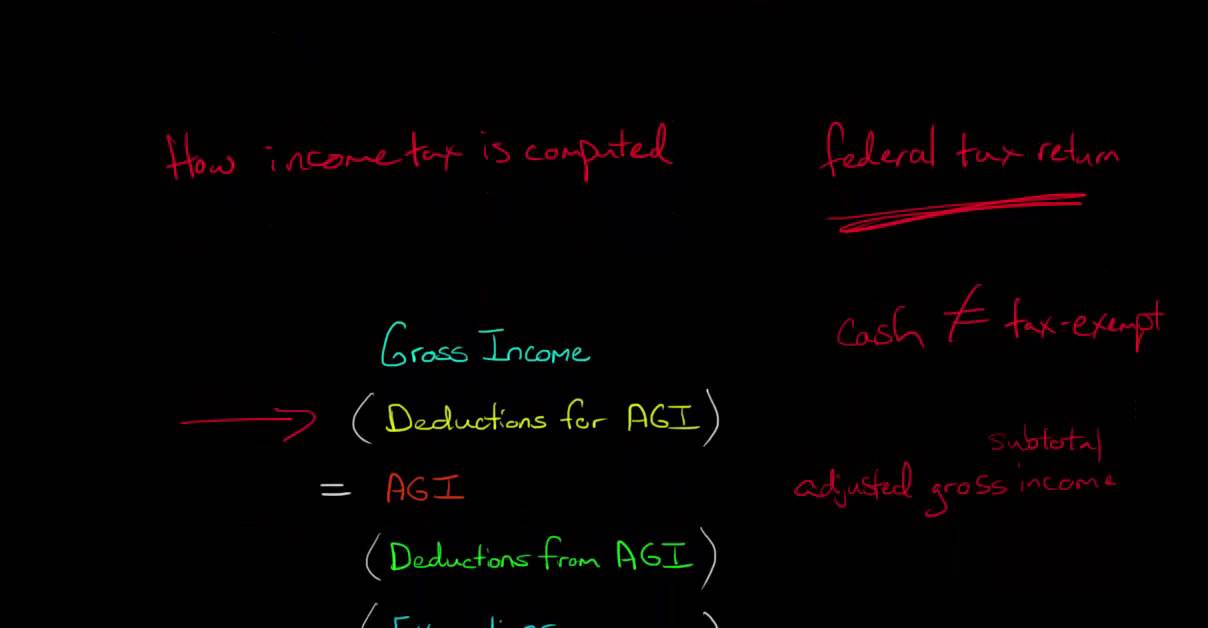 How income tax is computed
federal tax return
Gross Income
cash ≠ tax-exempt
(Deductions for AGI)
= AGI
subtotal
adjusted gross income
(Deductions from AGI)